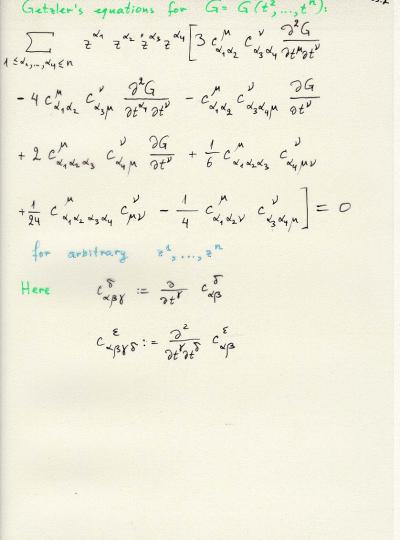 Getzler's equations for G = G(t², ..., tⁿ):
∑_{1 ≤ α₁, ..., α₄ ≤ n} z^{α₁} z^{α₂} z^{α₃} z^{α₄} [ 3 c^μ_{α₁α₂} c^ν_{α₃α₄} ∂²G/∂t^μ∂t^ν
- 4 c^μ_{α₁α₂} c^ν_{α₃μ} ∂²G/∂t^{α₄}∂t^ν - c^μ_{α₁α₂} c^ν_{α₃α₄μ} ∂G/∂t^ν
+ 2 c^μ_{α₁α₂α₃} c^ν_{α₄μ} ∂G/∂t^ν + 1/6 c^μ_{α₁α₂α₃} c^ν_{α₄μν}
+ 1/24 c^μ_{α₁α₂α₃α₄} c^ν_{μν} - 1/4 c^μ_{α₁α₂ν} c^ν_{α₃α₄μ} ] = 0
for arbitrary z¹, ..., zⁿ
Here c^δ_{αβγ} := ∂/∂t^γ c^δ_{αβ}
c^ε_{αβγδ} := ∂²/∂t^γ∂t^δ c^ε_{αβ}